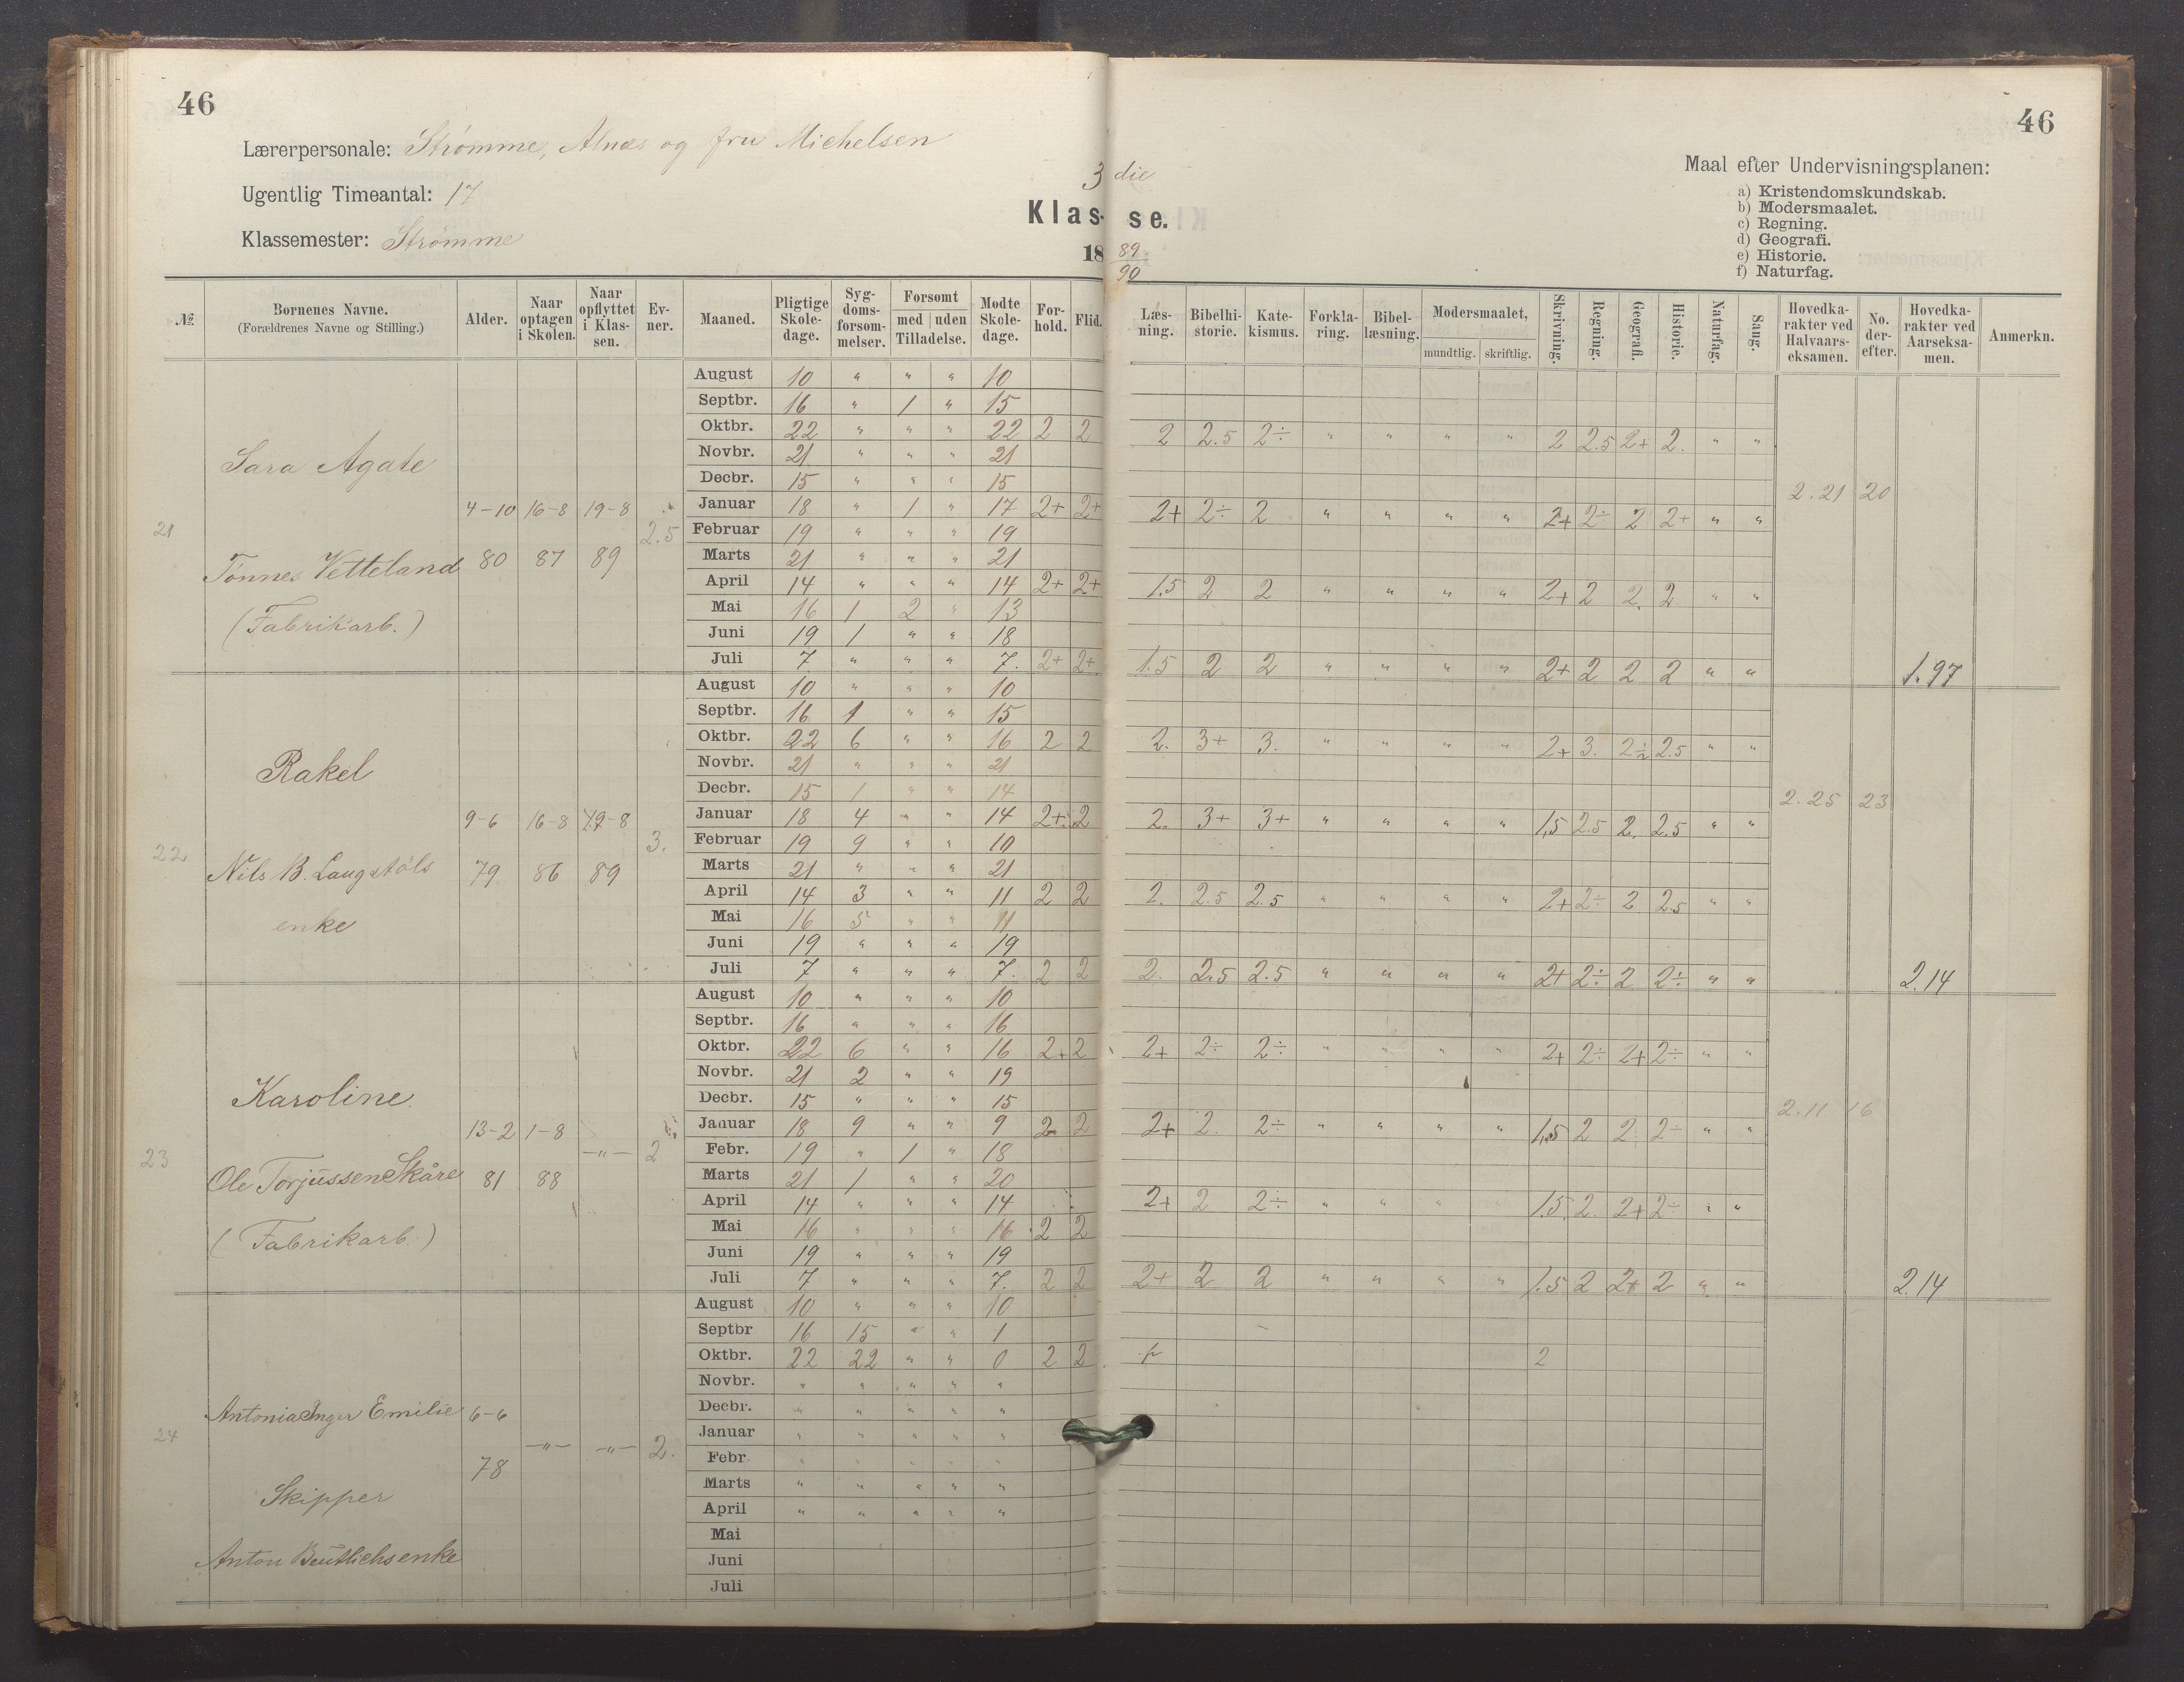 46
46
Lærerpersonale: Strømme, Alnæs og fru Michelsen
Ugentlig Timeantal: 17
Klassemester: Strømme
3die
Klasse.
1889/90
Maal efter Undervisningsplanen:
a) Kristendomskundskab.
b) Modersmaalet.
c) Regning.
d) Geografi.
e) Historie.
f) Naturfag.
№ | Børnenes Navne. (Forældrenes Navne og Stilling.) | Alder. | Naar optagen i Skolen. | Naar opflyttet i Klassen. | Evner. | Maaned. | Pligtige Skoledage. | Sygdomsforsømmelser. | Forsømt med uden Tilladelse. | Mødte Skoledage. | Forhold. | Flid. | Læsning. | Bibelhistorie. | Katekismus. | Forklaring. | Bibellæsning. | Modersmaalet, mundtlig. skriftlig. | Skrivning. | Regning. | Geografi. | Historie. | Naturfag. | Sang. | Hovedkarakter ved Halvaarseksamen. | No. derefter. | Hovedkarakter ved Aarseksamen. | Anmerkn.
21 Sara Agate
Tønnes Vetteland
(Fabrikarb.)
4-10 80 | 16-8 87 | 19-8 89 | 2.5
August 10 " " " 10
Septbr. 16 " 1 " 15
Oktbr. 22 " " " 22 2 2 | 2 2.5 2÷ " " " " 2 2.5 2+ 2. " "
Novbr. 21 " " " 21
Decbr. 15 " " " 15
2.21 20
Januar 18 " 1 " 17 2+ 2+ | 2+ 2÷ 2 " " " " 2+ 2÷ 2 2+ " "
Februar 19 " " " 19
Marts 21 " " " 21
April 14 " " " 14 2+ 2+ | 1.5 2 2 " " " " 2+ 2 2. 2. " "
Mai 16 1 2 " 13
Juni 19 1 " " 18
Juli 7 " " " 7. 2+ 2+ | 1.5 2 2 " " " " 2+ 2 2 2 " " 1.97
22 Rakel
Nils B. Laugstøls
enke
9-6 79 | 16-8 86 | 19-8 89 | 3.
August 10 " " " 10
Septbr. 16 1 " " 15
Oktbr. 22 6 " " 16 2 2 | 2. 3+ 3. " " " " 2+ 3. 2÷ 2.5 " "
Novbr. 21 " " " 21
Decbr. 15 1 " " 14
2.25 23
Januar 18 4 " " 14 2+ 2 | 2. 3+ 3+ " " " " 1.5 2.5 2. 2.5 " "
Februar 19 9 " " 10
Marts 21 " " " 21
April 14 3 " " 11 2 2 | 2. 2.5 2.5 " " " " 2+ 2÷ 2 2.5 " "
Mai 16 5 " " 11
Juni 19 " " " 19
Juli 7 " " " 7. 2 2 | 2. 2.5 2.5 " " " " 2+ 2÷ 2 2÷ " " 2.14
23 Karoline
Ole Torjussen Skåre
(Fabrikarb.)
13-2 81 | 1-8 88 | —"— | 2
August 10 " " " 10
Septbr. 16 " " " 16
Oktbr. 22 6 " " 16 2+ 2 | 2+ 2÷ 2÷ " " " " 2+ 2÷ 2+ 2÷ " "
Novbr. 21 2 " " 19
Decbr. 15 " " " 15
2.11 16
Januar 18 9 " " 9 2 2 | 2+ 2. 2÷ " " " " 1.5 2 2. 2÷ " "
Febr. 19 " 1 " 18
Marts 21 1 " " 20
April 14 " " " 14 | 2+ 2 2÷ " " " 1.5. 2. 2+ 2÷ " "
Mai 16 " " " 16 2 2
Juni 19 " " " 19
Juli 7 " " " 7. 2 2 | 2+ 2 2 " " " " 1.5 2 2+ 2 " " 2.14
24 Antonia Inger Emilie
Skipper
Anton Beutlichs enke
6-6 78 | —"— | —"— | 2.
August 10 " " " 10
Septbr 16 15 " " 1
Oktbr. 22 22 " " 0 2 2 | 2
Novbr. " " " " "
Decbr. " " " " "
Januar " " " " "
Febr. " " " " "
Marts " " " " "
April " " " " "
Mai
Juni
Juli